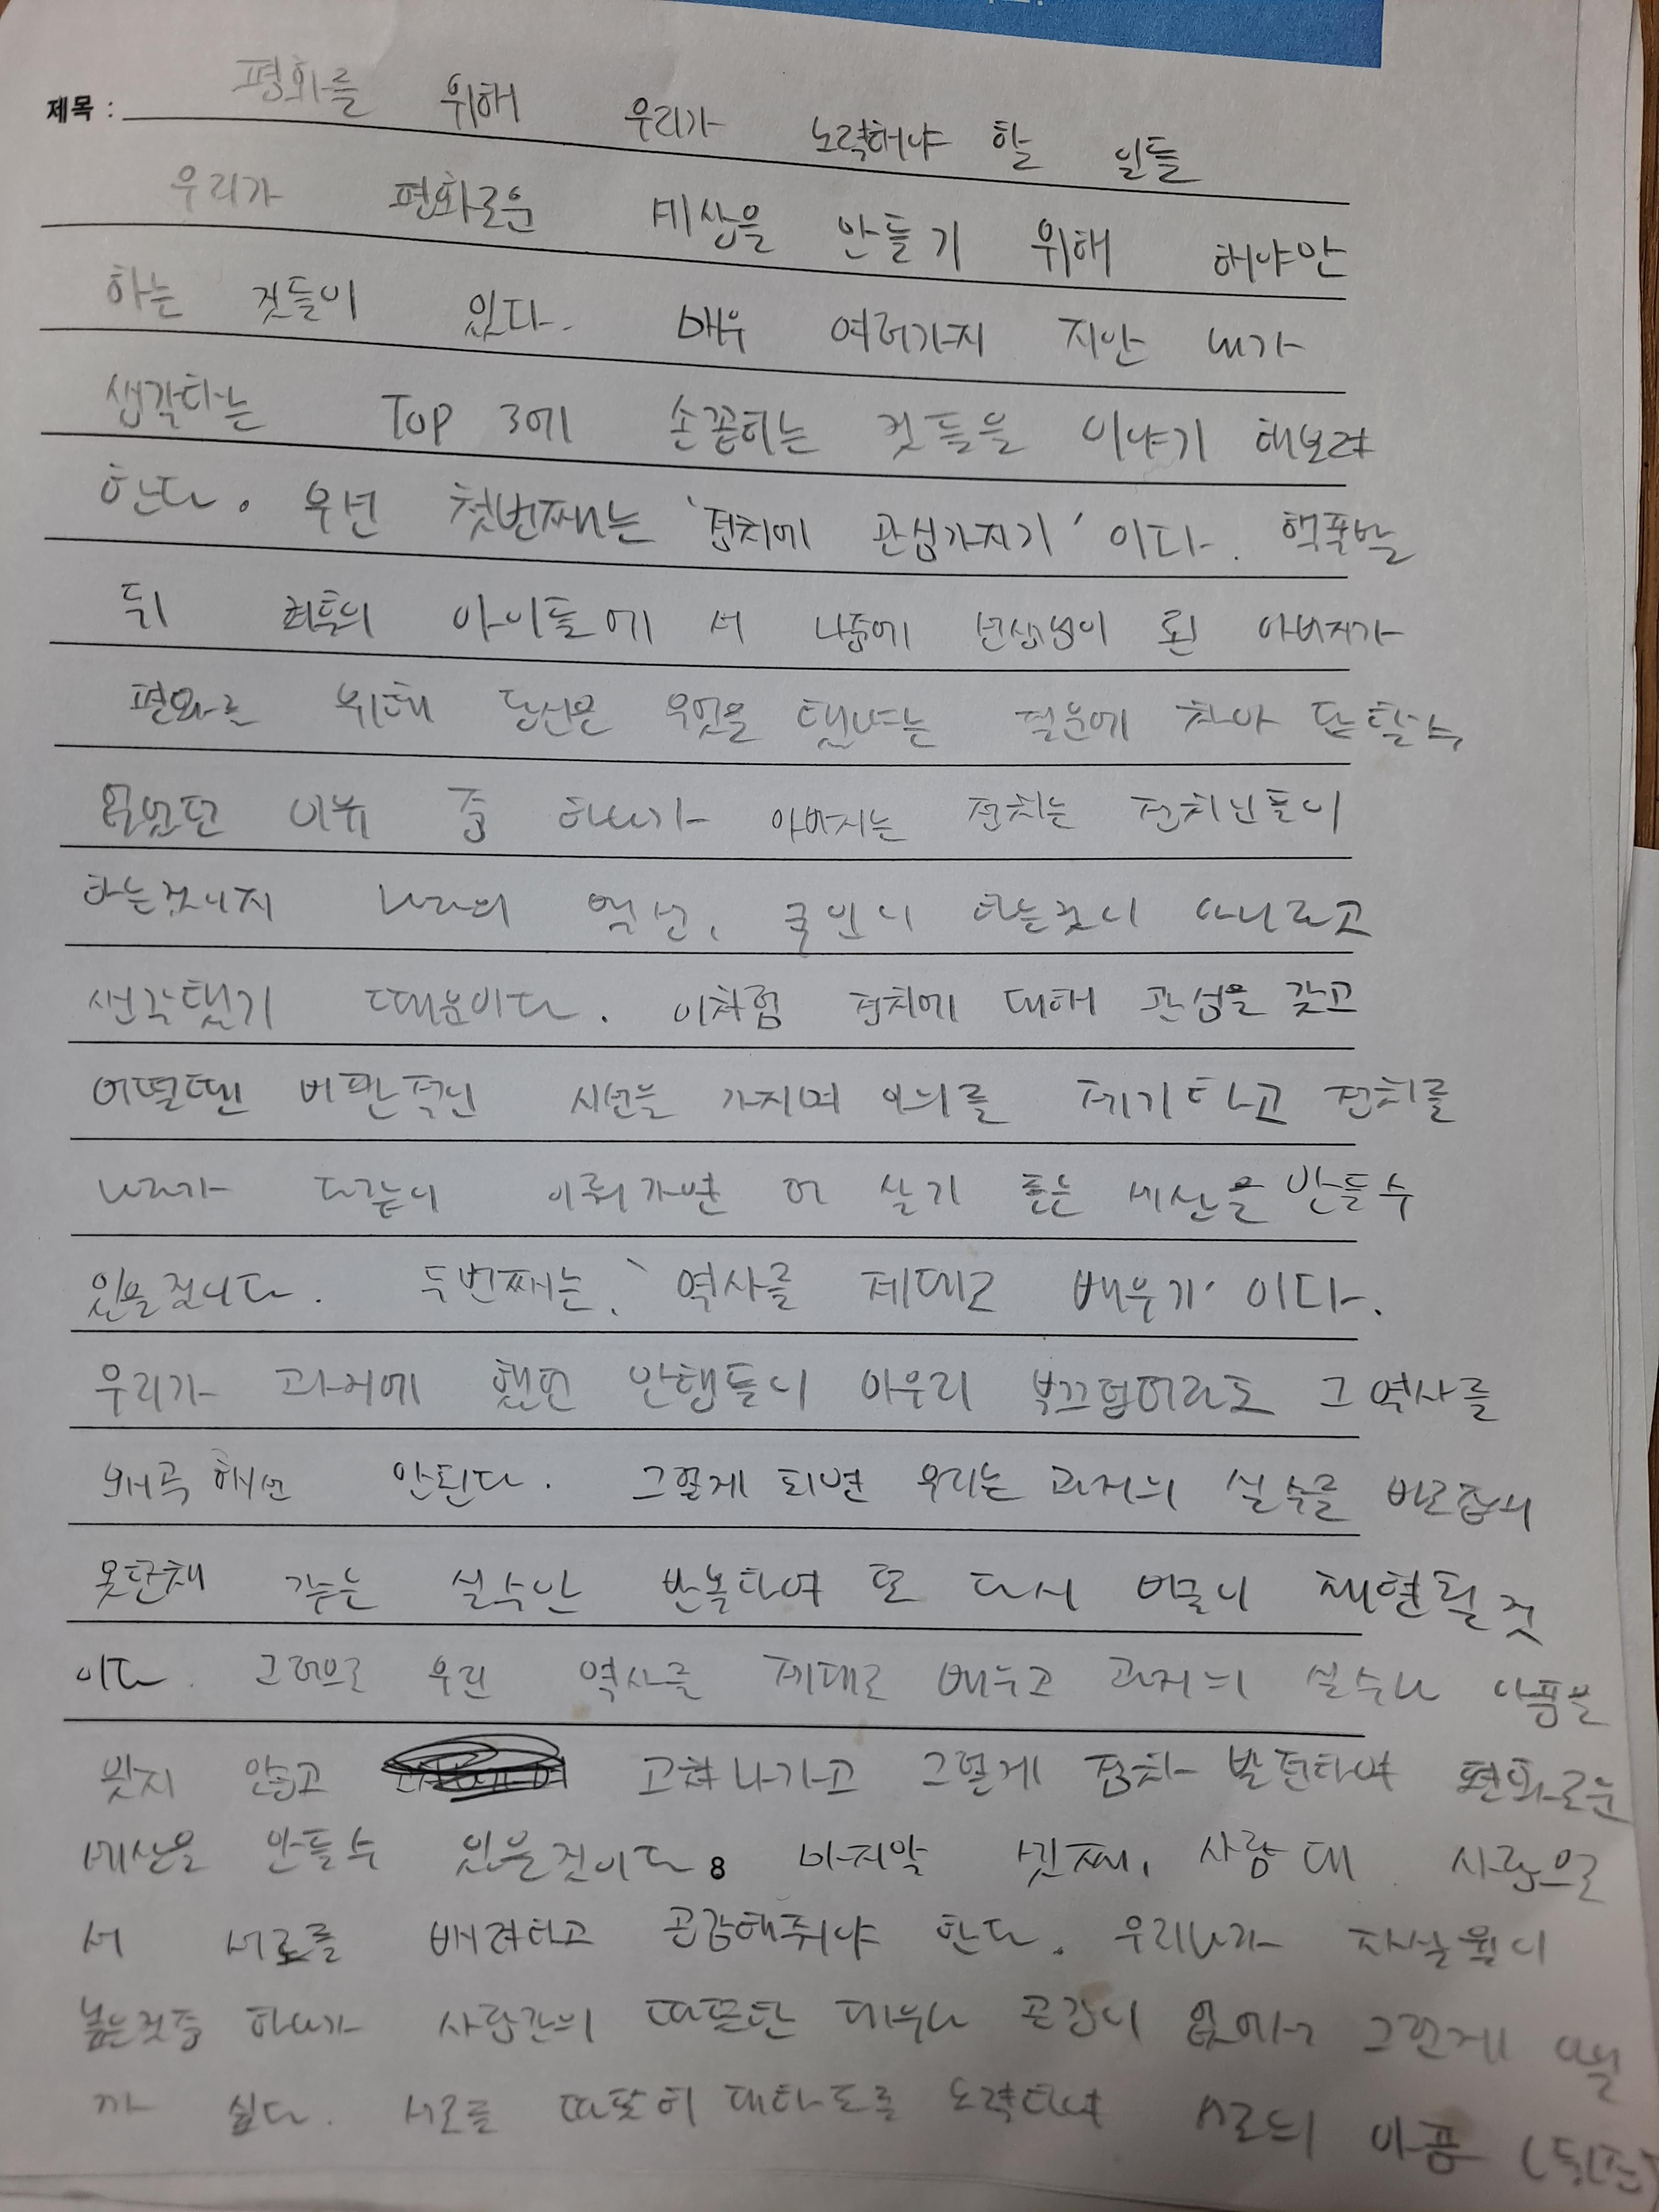 제목 : 평화를 위해 우리가 노력해야 할 일들
우리가 평화로운 세상을 만들기 위해 해야만
하는 것들이 있다. 매우 여러가지 지만 내가
생각하는 Top 3에 손꼽히는 것들을 이야기 해보려
한다. 우선 첫번째는 '정치에 관심가지기' 이다. 핵폭발
뒤 최후의 아이들에 서 나중에 선생님이 된 아버지가
평화를 위해 당신은 무엇을 했냐는 질문에 차마 답할수
없었던 이유 중 하나가 아버지는 정치는 정치인들이
하는것이지 나라의 국민이 하는것이 아니라고
생각했기 때문이다. 이처럼 정치에 대해 관심을 갖고
어떨땐 비판적인 시선을 가지며 이의를 제기하고 정치를
다같이 이뤄가면 더 살기 좋은 세상을 만들수
있을것이다. 두번째는, '역사를 제대로 배우기' 이다.
우리가 과거에 했던 만행들이 아무리 부끄럽더라도 그 역사를
왜곡해선 안된다. 그렇게 되면 우리는 과거의 실수를 바로잡지
못한채 같은 실수만 반복하여 또 다시 비극이 재현될것
이다. 그러므로 우린 역사를 제대로 배우고 과거의 실수나 아픔을
잊지 않고 고쳐나가고 그렇게 점차 발전하여 평화로운
세상을 만들수 있을것이다. 마지막 셋째, 사람 대 사람으로
서 서로를 배려하고 공감해줘야 한다. 우리나라가 자살률이
높은것중 하나가 사람간의 따뜻한 대우나 공감이 없어서 그런게 아닐
까 싶다. 서로를 따뜻이 대하도록 노력하며 서로의 아픔 (뒷장)